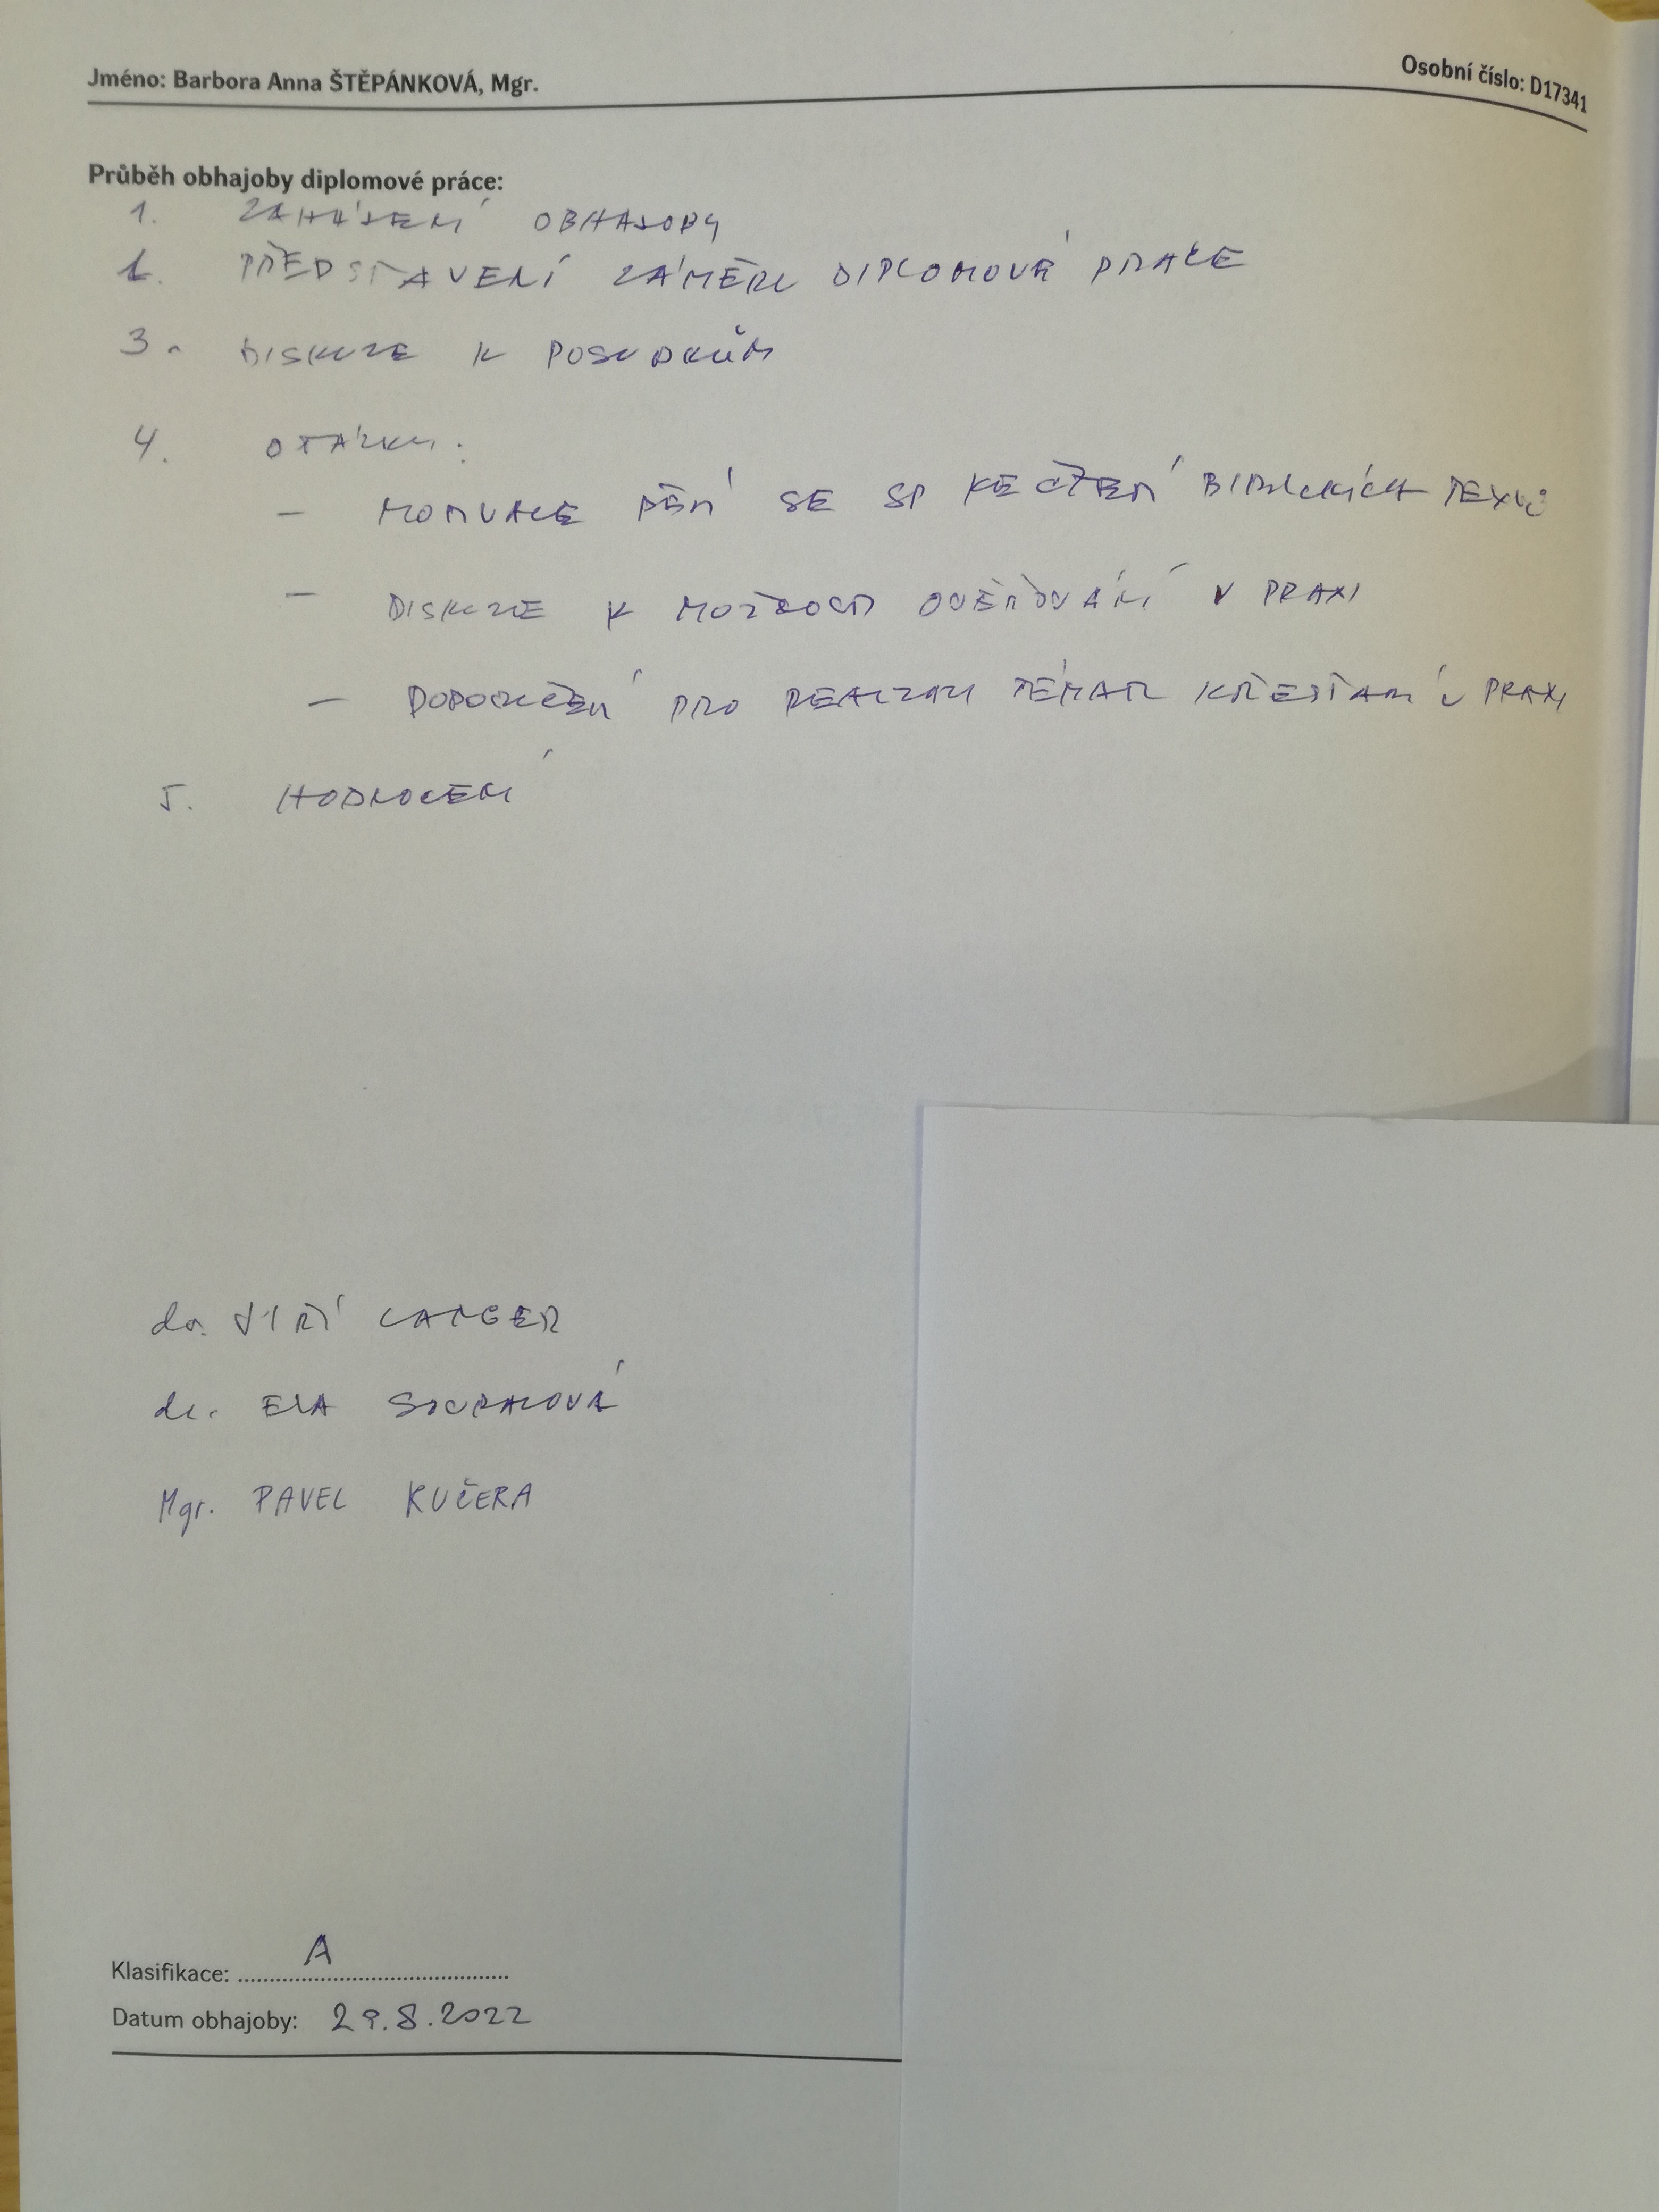 Jméno: Barbora Anna ŠTĚPÁNKOVÁ, Mgr. Osobní číslo: D17341
Průběh obhajoby diplomové práce:
1. ZAHÁJENÍ OBHAJOBY
2. PŘEDSTAVENÍ ZÁMĚRU DIPLOMOVÉ PRÁCE
3. DISKUZE K POSUDKŮM
4. OTÁZKY:
– MOTIVACE DĚTÍ SE SP KE ČTENÍ BIBLICKÝCH TEXTŮ
– DISKUZE K MOŽNOSTI OVĚŘOVÁNÍ V PRAXI
– DOPORUČENÍ PRO REALIZACI TÉMAT KŘESŤANŮ V PRAXI
5. HODNOCENÍ
dr. JIŘÍ LANGER
dr. EVA SOURALOVÁ
Mgr. PAVEL KUČERA
Klasifikace: A
Datum obhajoby: 29.8.2022